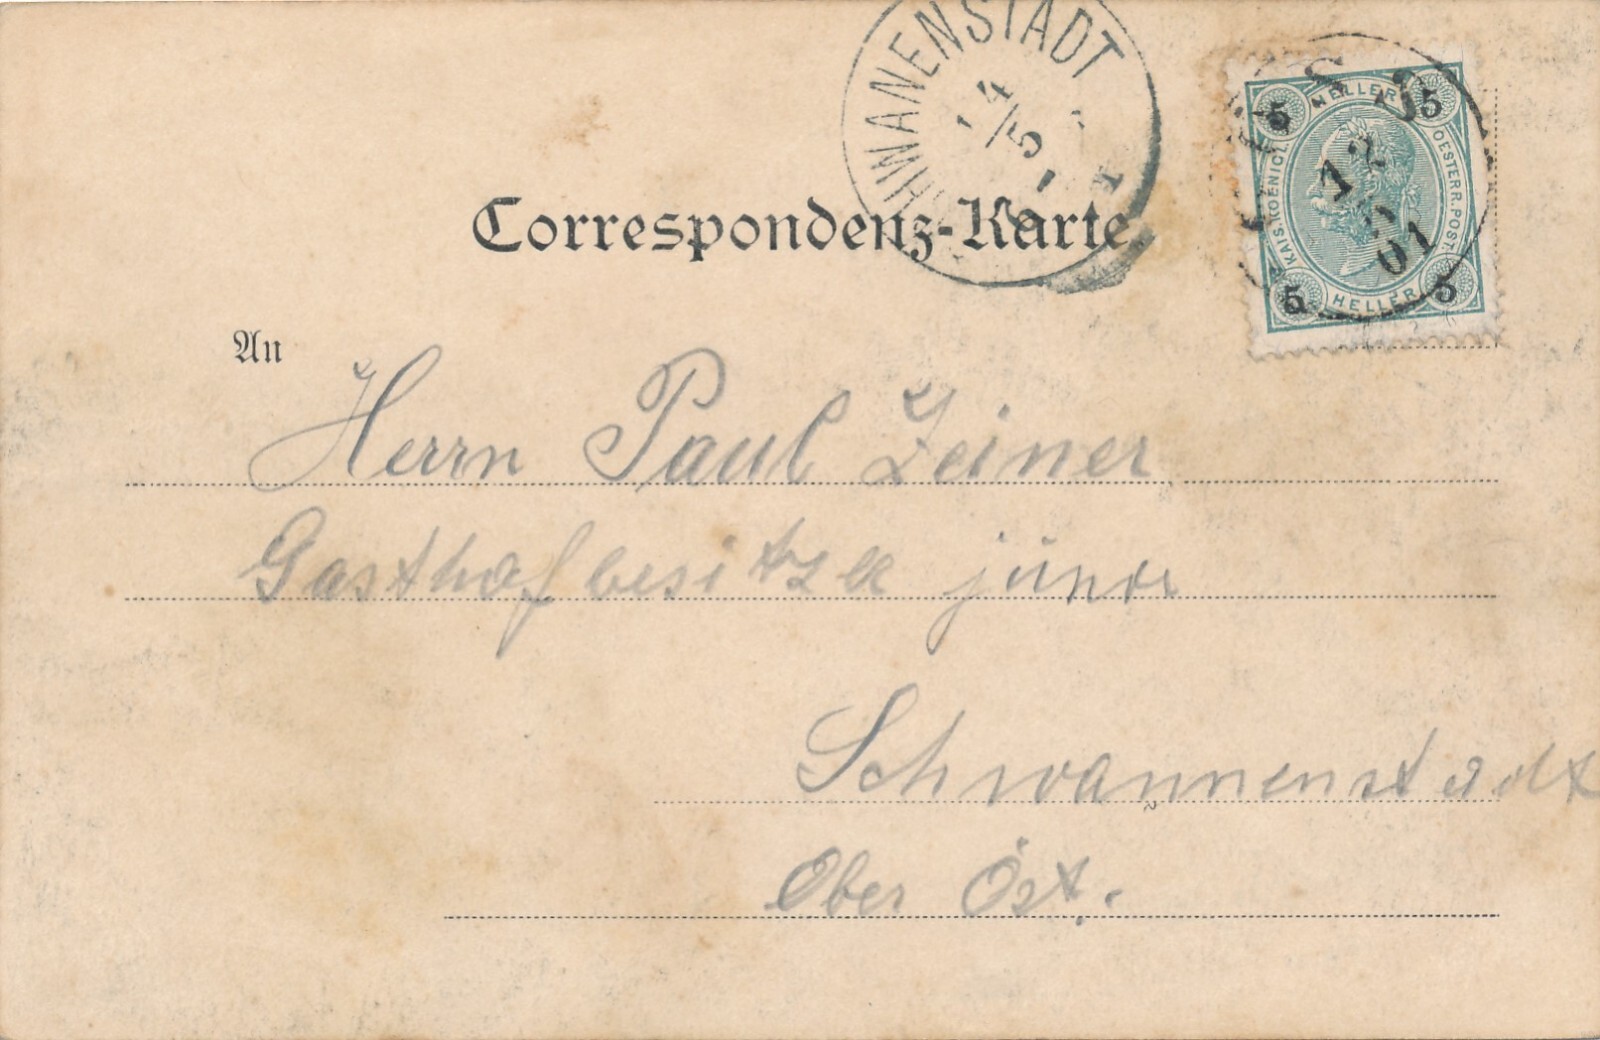 SCHWANENSTADT
14/5
1
Correspondenz-Karte.
5 HELLER 5
KAIS. KOENIGL. OESTERR. POST.
12
5
01
5 HELLER 5
An
Herrn Paul Zeiner
Gasthofbesitzer
Schwannenstadt
Ober Öst.